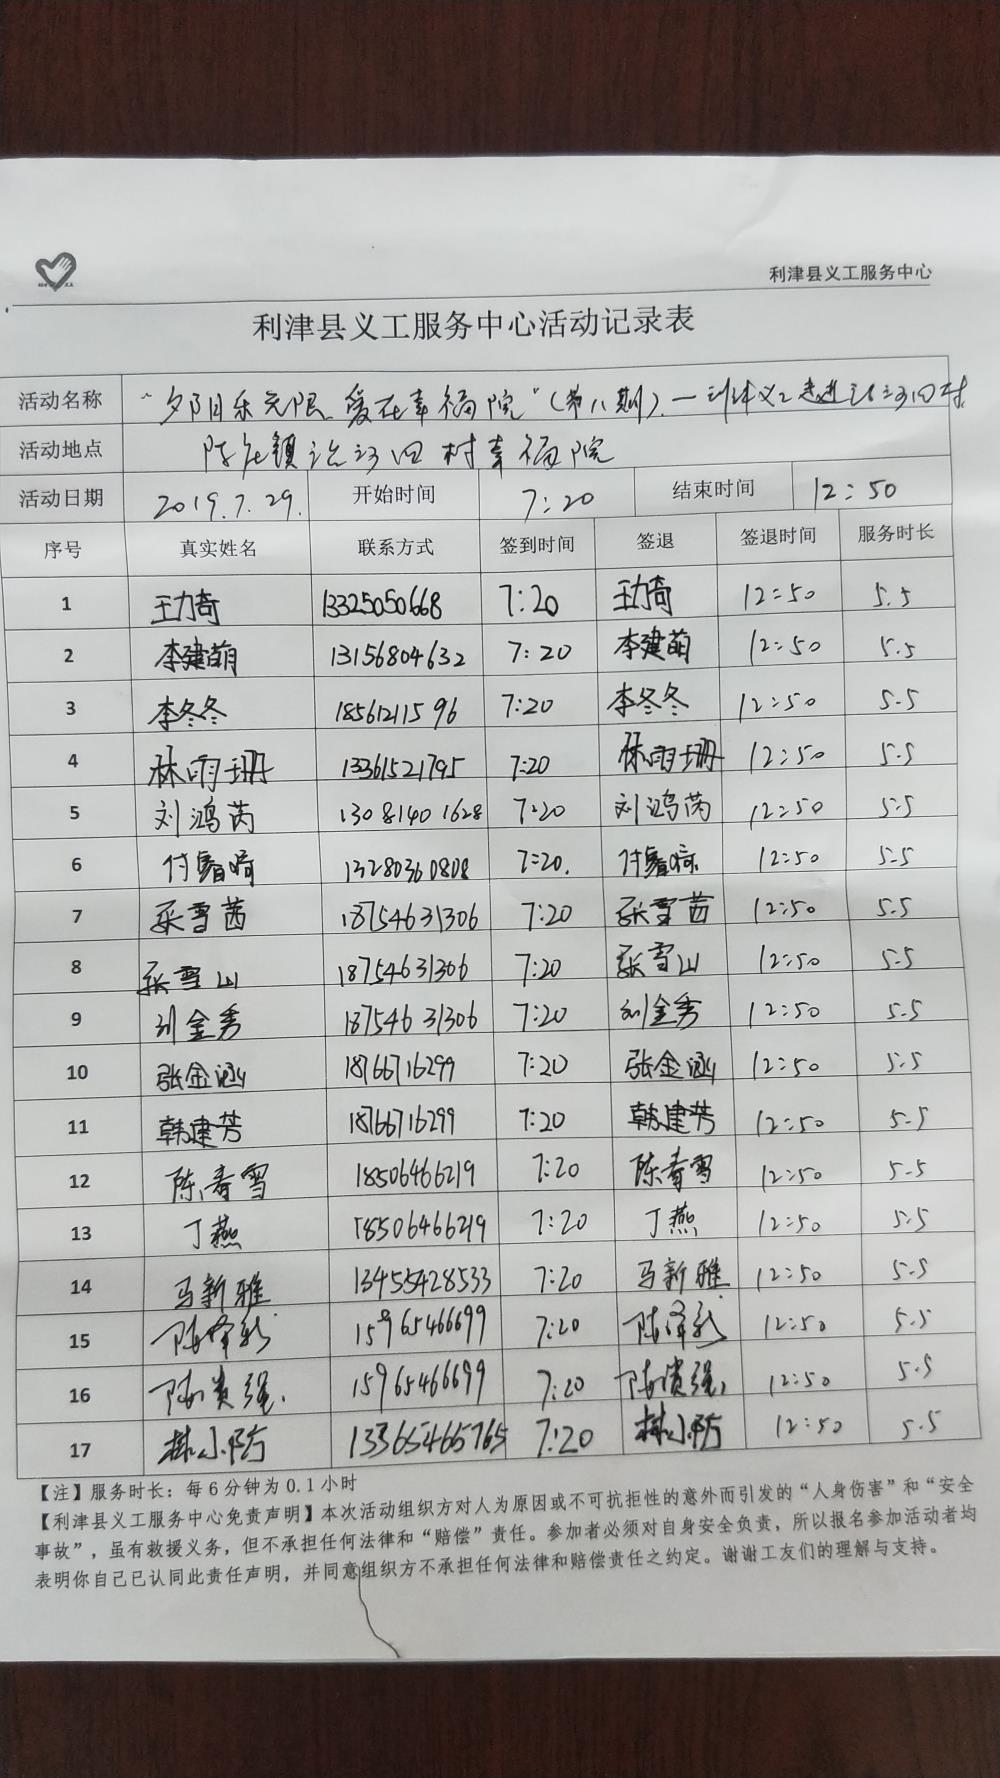 利津县义工服务中心
利津县义工服务中心活动记录表
活动名称 "夕阳乐无限 爱在幸福院"(第八期).—利津义工走进沿河四村
活动地点 陈庄镇沿河四村幸福院
活动日期 2019.7.29. 开始时间 7:20 结束时间 12:50
序号 真实姓名 联系方式 签到时间 签退 签退时间 服务时长
1 王力奇 13325050668 7:20 王力奇 12:50 5.5
2 李建萌 13156804632 7:20 李建萌 12:50 5.5
3 李冬冬 18561211596 7:20 李冬冬 12:50 5.5
4 林雨珊 13361521795 7:20 林雨珊 12:50 5.5
5 刘鸿芮 13081401628 7:20 刘鸿芮 12:50 5.5
6 付 13280360808 7:20. 付 12:50 5.5
7 张雪茜 18754631306 7:20 张雪茜 12:50 5.5
8 张雪山 18754631306 7:20 张雪山 12:50 5.5
9 刘金秀 18754631306 7:20 刘金秀 12:50 5.5
10 张金涵 18766716299 7:20 张金涵 12:50 5.5
11 韩建芳 18766716299 7:20 韩建芳 12:50 5.5
12 陈春雪 18506466219 7:20 陈春雪 12:50 5.5
13 丁燕 18506466219 7:20 丁燕 12:50 5.5
14 马新雅 13455428533 7:20 马新雅 12:50 5.5
15 陈泽新 15965466699 7:20 陈泽新 12:50 5.5
16 陈贵强 15965466699 7:20 陈贵强 12:50 5.5
17 林小防 13365466765 7:20 林小防 12:50 5.5
【注】服务时长:每6分钟为0.1小时
【利津县义工服务中心免责声明】本次活动组织方对人为原因或不可抗拒性的意外而引发的"人身伤害"和"安全
事故",虽有救援义务,但不承担任何法律和"赔偿"责任。参加者必须对自身安全负责,所以报名参加活动者均
表明你自己已认同此责任声明,并同意组织方不承担任何法律和赔偿责任之约定。谢谢工友们的理解与支持。